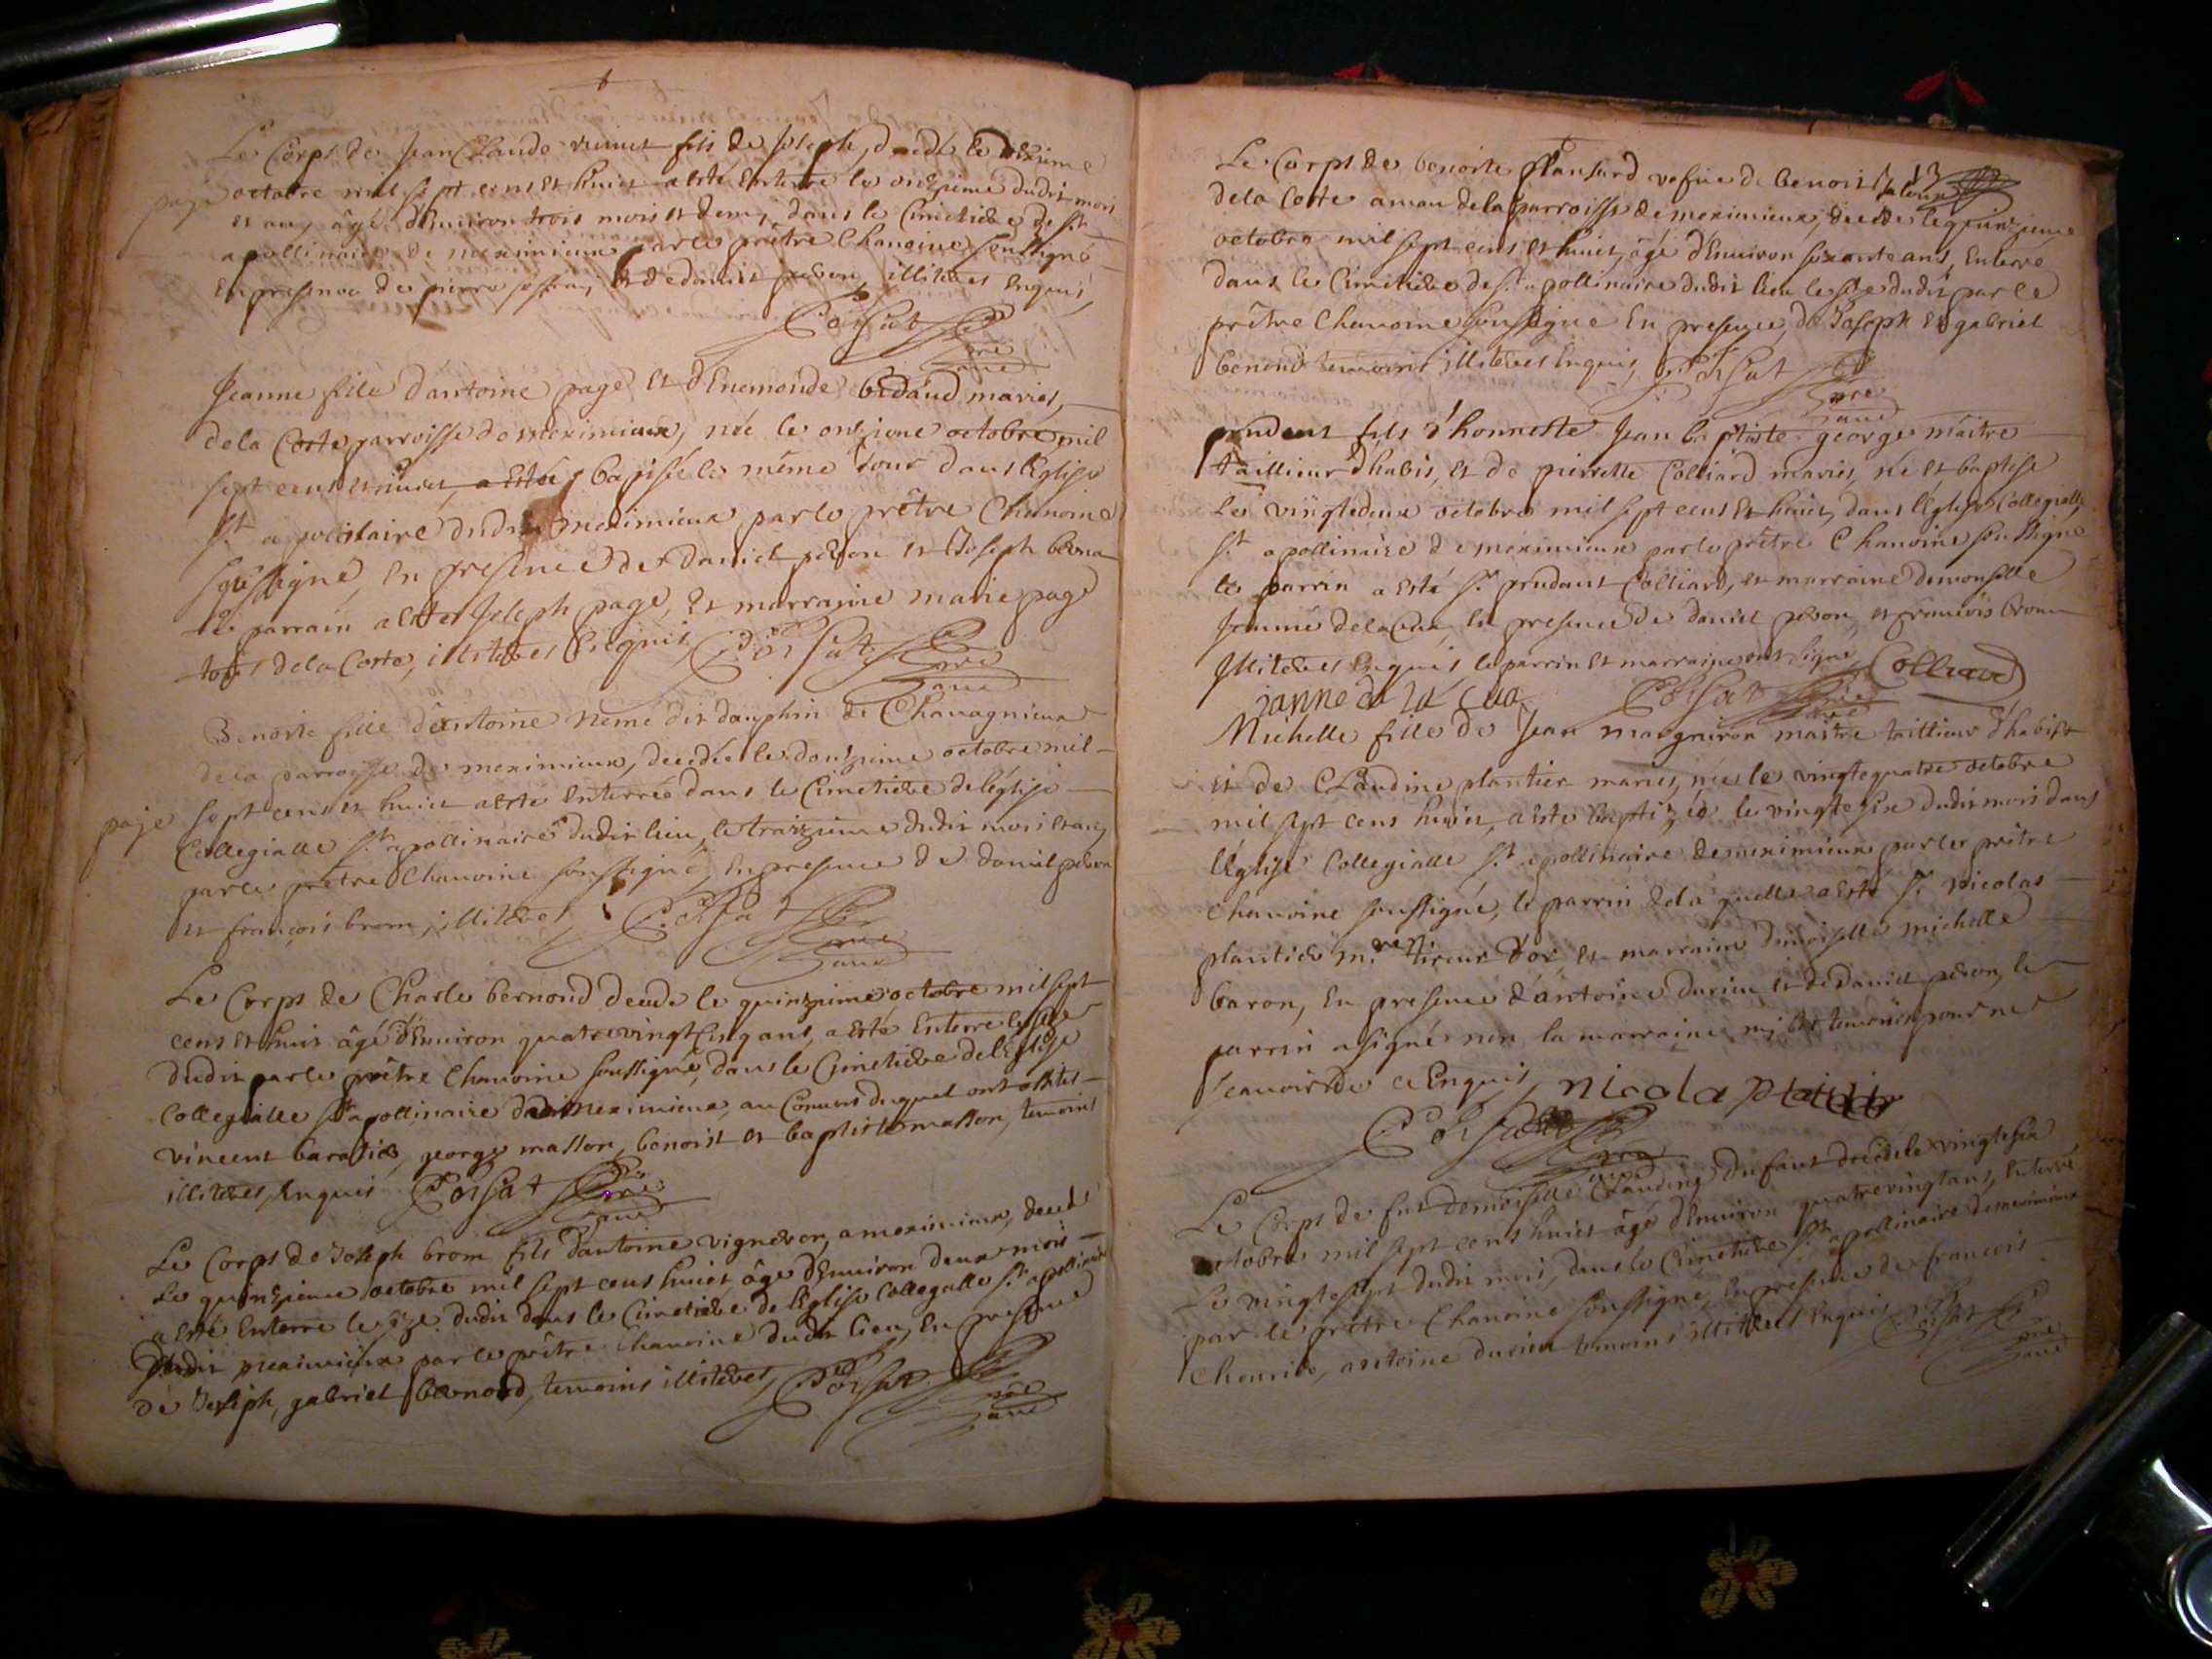 Le Corps de Jean Claude fils de Joseph, decede le dixieme
octobre mil sept cens et huict a esté Enterré le onzieme dudit mois
et an, âgé d'Environ trois mois et demy, dans le Cimetiere de St
apollinaire de meximieux par le prêtre Chanoine soussigné
En presence de pierre et de daniel illiteres Enquis
Porsat
pre
Jeanne fille d'antoine page et d'Enemonde bedaud mariés,
dela Coste parroisse de meximieux, née le onzieme octobre mil
sept cens et huict, a estée baptisée le même Jour dans l'Eglise
St apolinaire dudit meximieux par le prêtre Chanoine
soussigné, En presence de daniel et Joseph
le parrain a esté Joseph page, Et marraine marie page
tous dela Coste, illiteres Enquis, Porsat
pre
Benoite fille d'antoine neme dit dauphin de Chavagnieux
dela parroisse de meximieux, decedée le douzieme octobre mil
page sept cens et huict a esté Enterrée dans le Cimetiere de l'église
Collegialle St apollinaire dudit lieu, le traizieme dudit mois et an,
par le prêtre Chanoine soussigné, En presence de daniel
et françois brom, illiteres, Porsat
pre
Le Corps de Charle bernond decedé le quinzieme octobre mil sept
cens et huit âgé d'Environ quatrevingt cinq ans, a esté Enterré le
dudit par le prêtre Chanoine soussigné, dans le Cimetiere de l'Eglise
Collegialle St apollinaire dudit meximieux, au Convois duquel ont assisté
vincent george masson, benoist et baptiste masson, temoins
illiteres Enquis Porsat
pre
Le Corps de Joseph brom fils d'antoine vigneron, a meximieux, decedé
Le quinzieme octobre mil sept cens huict, âgé d'Environ deux mois
a esté Enterré le size dudit dans le Cimetiere de l'Eglise Collegialle St apollinaire
dudit meximieux par le prêtre Chanoine dudit lieu, En presence
de Joseph, gabriel bernond, temoins illiteres, Porsat
pre
Le Corps de benoite vefue de benoit
dela Coste aman dela parroisse de meximieux, decedée le quinzieme
octobre mil sept cens et huict, âgé d'Environ soixante ans, Enterré
dans le Cimetiere de St apollinaire dudit lieu le size dudit par le
prêtre Chanoine soussigné En presence de Joseph et gabriel
benond temoins illiteres Enquis, Porsat
pre
prudent fils d'honneste Jean baptiste george maitre
taillieur d'habis, et de pierrette Colliard mariés, né et baptisé
Le vingtedeux octobre mil sept cens et huict, dans l'Eglise Collegialle
St apollinaire de meximieux par le prêtre Chanoine soussigné
le parrin a esté Sr prudent Colliard, et marraine demoiselle
Jeanne dela Cua, En presence de daniel et françois brom
Illiteres Enquis, le parrin et marraine ont signé, Colliard
janne de la Cua Porsat
Michelle fille de Jean margniron maitre taillieur d'habist
et de Claudine plantier mariés, née le vingtequatre octobre
mil sept cens huict, a esté baptizée le vingtesix dudit mois dans
l'Eglise Collegialle St apollinaire de meximieux par le prêtre
Chanoine soussigné, le parrin de laquelle a esté Sr nicolas
plantier mre tireur d'or et marraine demoiselle michelle
baron, En presence d'antoine durieu et de daniel le
parrin a signé non la marraine ny les temoins pour ne
scauoir de ce Enquis, nicola
Porsat
pre
Le Corps de fut demoiselle Claudine dufaut decedé le vingtesix
octobre mil sept cens huict âgé d'Environ quatrevingt ans, Enterré
Le vingtesept dudit mois, dans le Cimetiere St apollinaire de meximieux
par le prêtre Chanoine soussigné, En presence de francois
antoine durieu temoins illiteres Enquis Porsat
pre